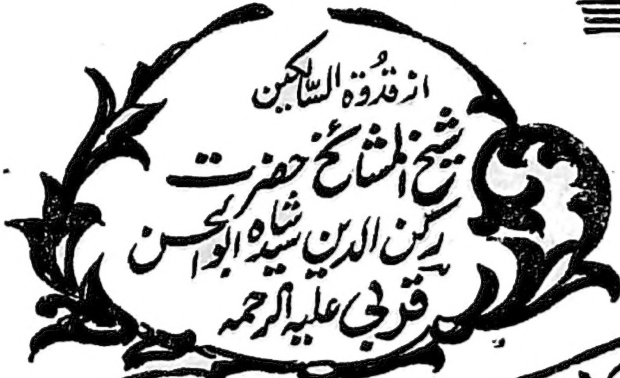 از قدُوۃ السّالکین
شیخ المشائخ حضرت
رکن الدین سید شاہ ابو الحسن
قربی علیہ الرحمہ